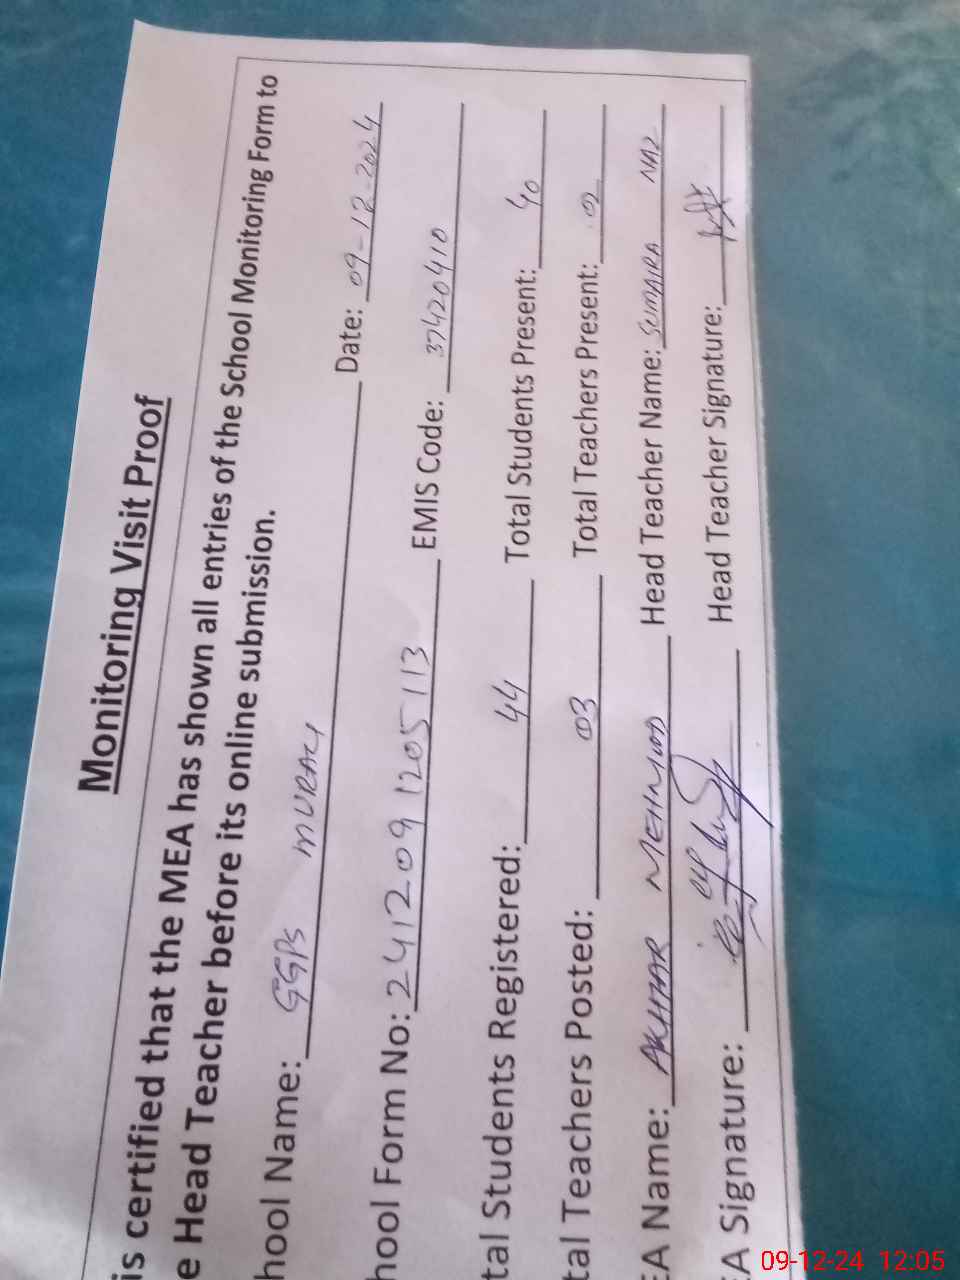 Monitoring Visit Proof
is certified that the MEA has shown all entries of the School Monitoring Form to
e Head Teacher before its online submission.
hool Name: GGPS MURACY Date: 09-12-2024
hool Form No: 241209 1205113 EMIS Code: 37420410
tal Students Registered: 44 Total Students Present: 40
tal Teachers Posted: 03 Total Teachers Present: 02
EA Name: AKHTAR MEHMOOD Head Teacher Name: SUMAIRA NAZ
EA Signature: Head Teacher Signature:
09-12-24 12:05